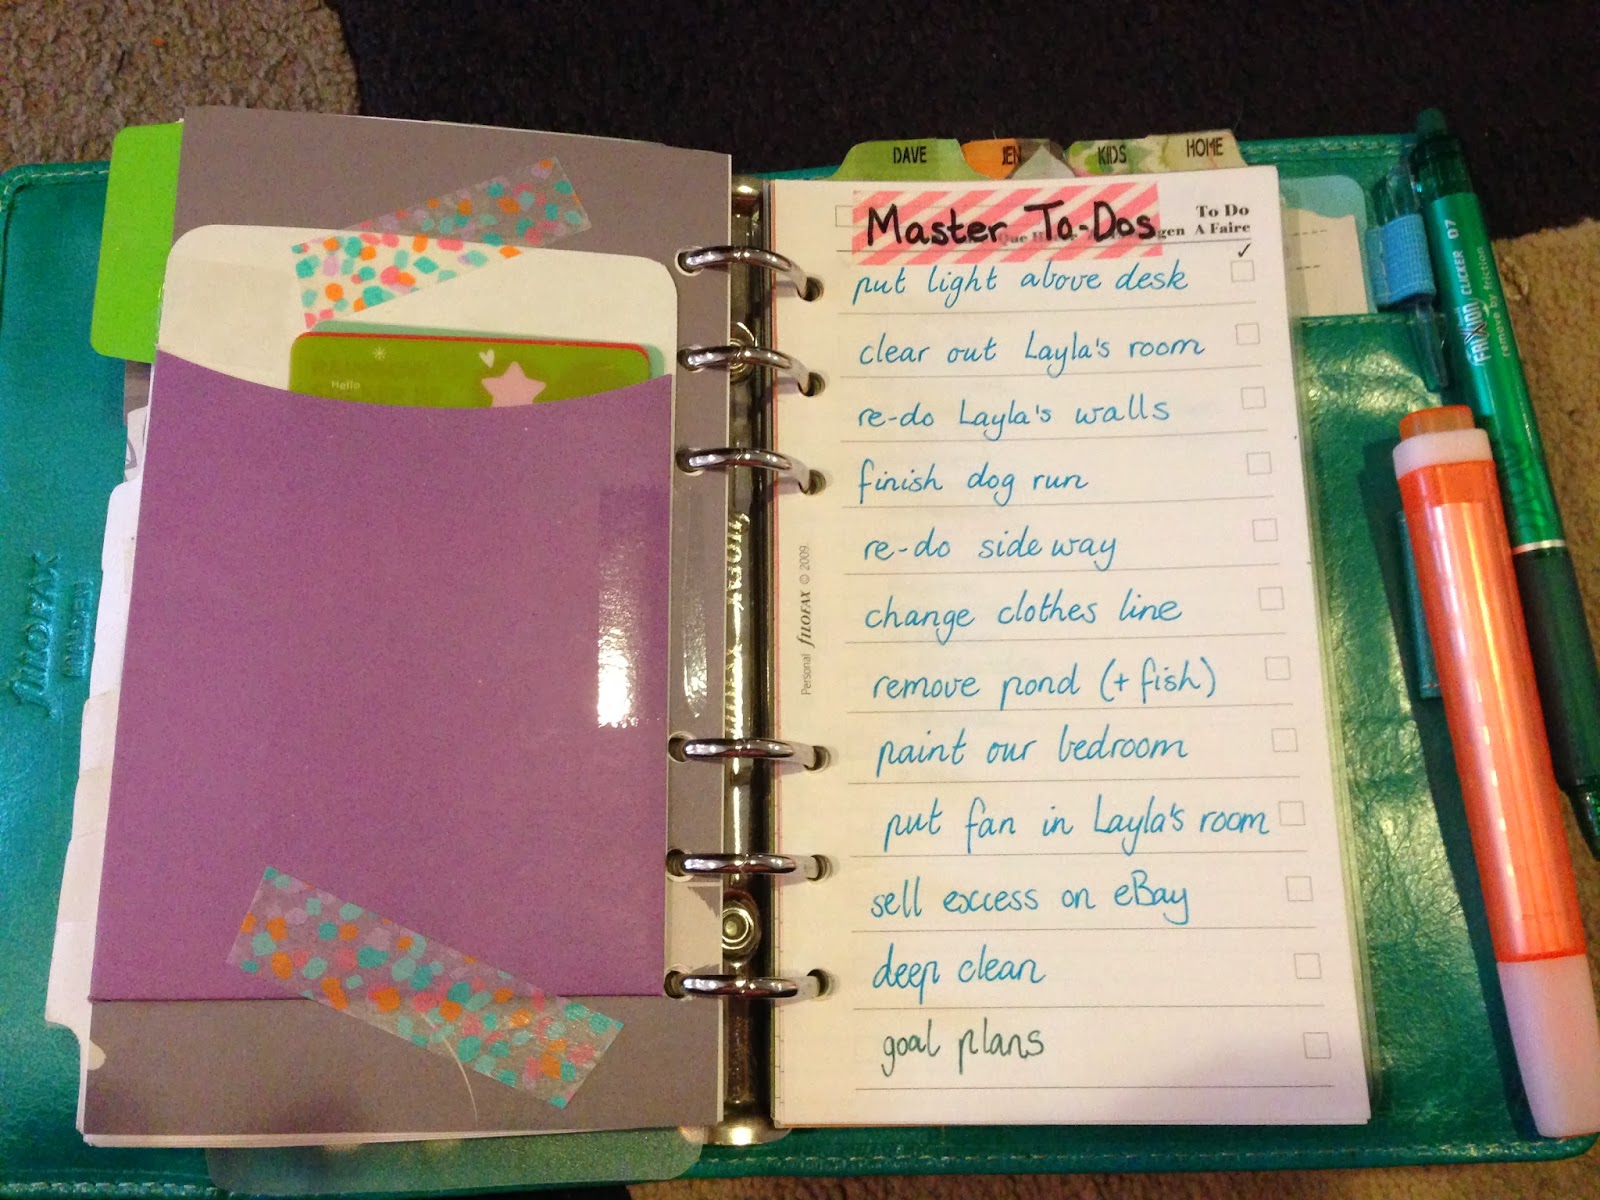 DAVE
JEN
KIDS
HOME
Master To-Dos
To Do
Que
gen A Faire
✓
put light above desk
clear out Layla's room
re-do Layla's walls
finish dog run
re-do side way
change clothes line
remove pond (+ fish)
paint our bedroom
put fan in Layla's room
sell excess on eBay
deep clean
goal plans
Personal FILOFAX © 2009
Hello
FILOFAX
MALDEN
FRIXION CLICKER 07
remove by friction